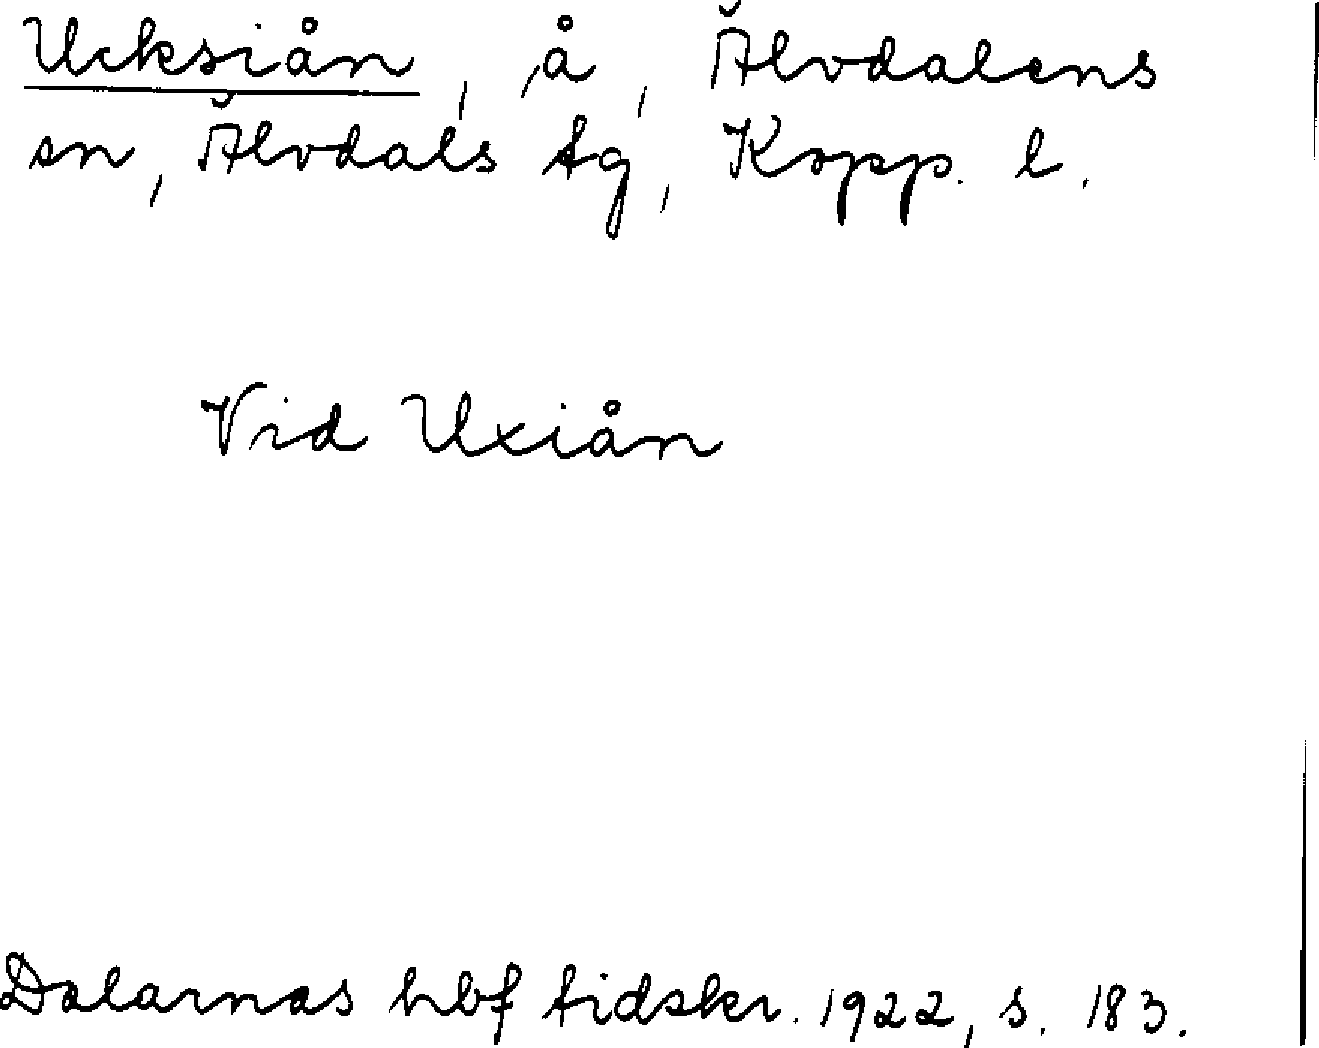 Ucksiån, å, Älvdalens
sn, Älvdals tg, Kopp. l.
Vid Uxiån
Dalarnas hbf tidskr. 1922, s. 183.